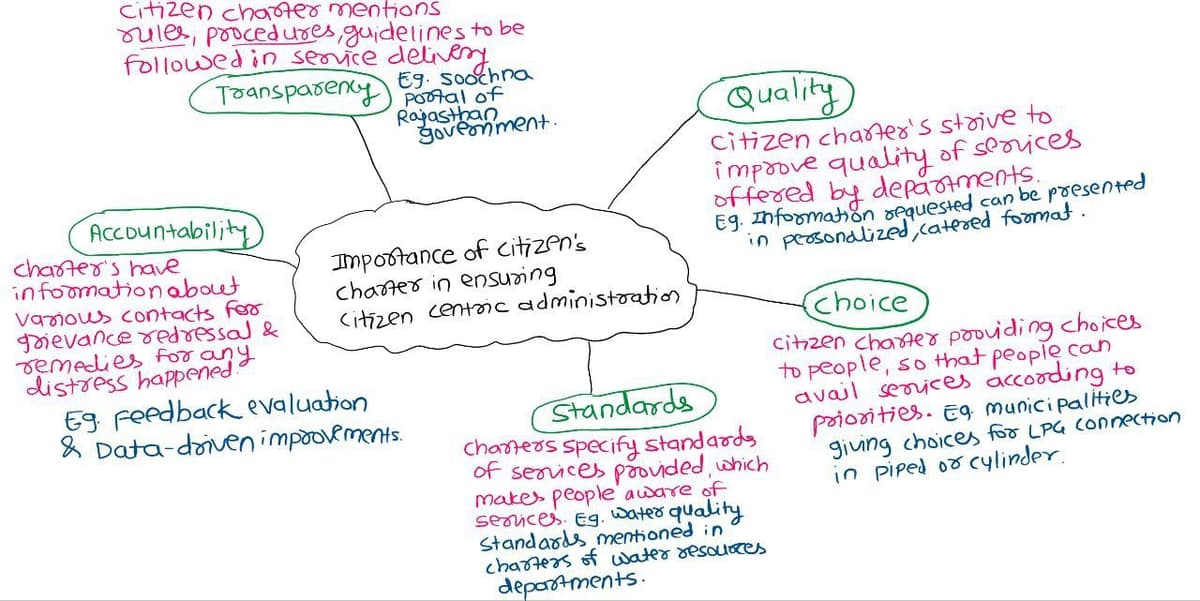 citizen charter mentions
rules, procedures, guidelines to be
followed in service delivery
Transparency
Eg. Soochna
portal of
Rajasthan
government.
Quality
citizen charter's strive to
improve quality of services
offered by departments.
Eg. Information requested can be presented
in personalized, catered format.
Accountability
charter's have
information about
various contacts for
grievance redressal &
remedies for any
distress happened.
Eg. Feedback evaluation
& Data-driven improvements.
Importance of citizen's
charter in ensuring
citizen centric administration
choice
citizen charter providing choices
to people, so that people can
avail services according to
priorities. Eg municipalities
giving choices for LPG connection
in piped or cylinder.
Standards
charters specify standards
of services provided, which
makes people aware of
services. Eg. water quality
standards mentioned in
charters of water resources
departments.